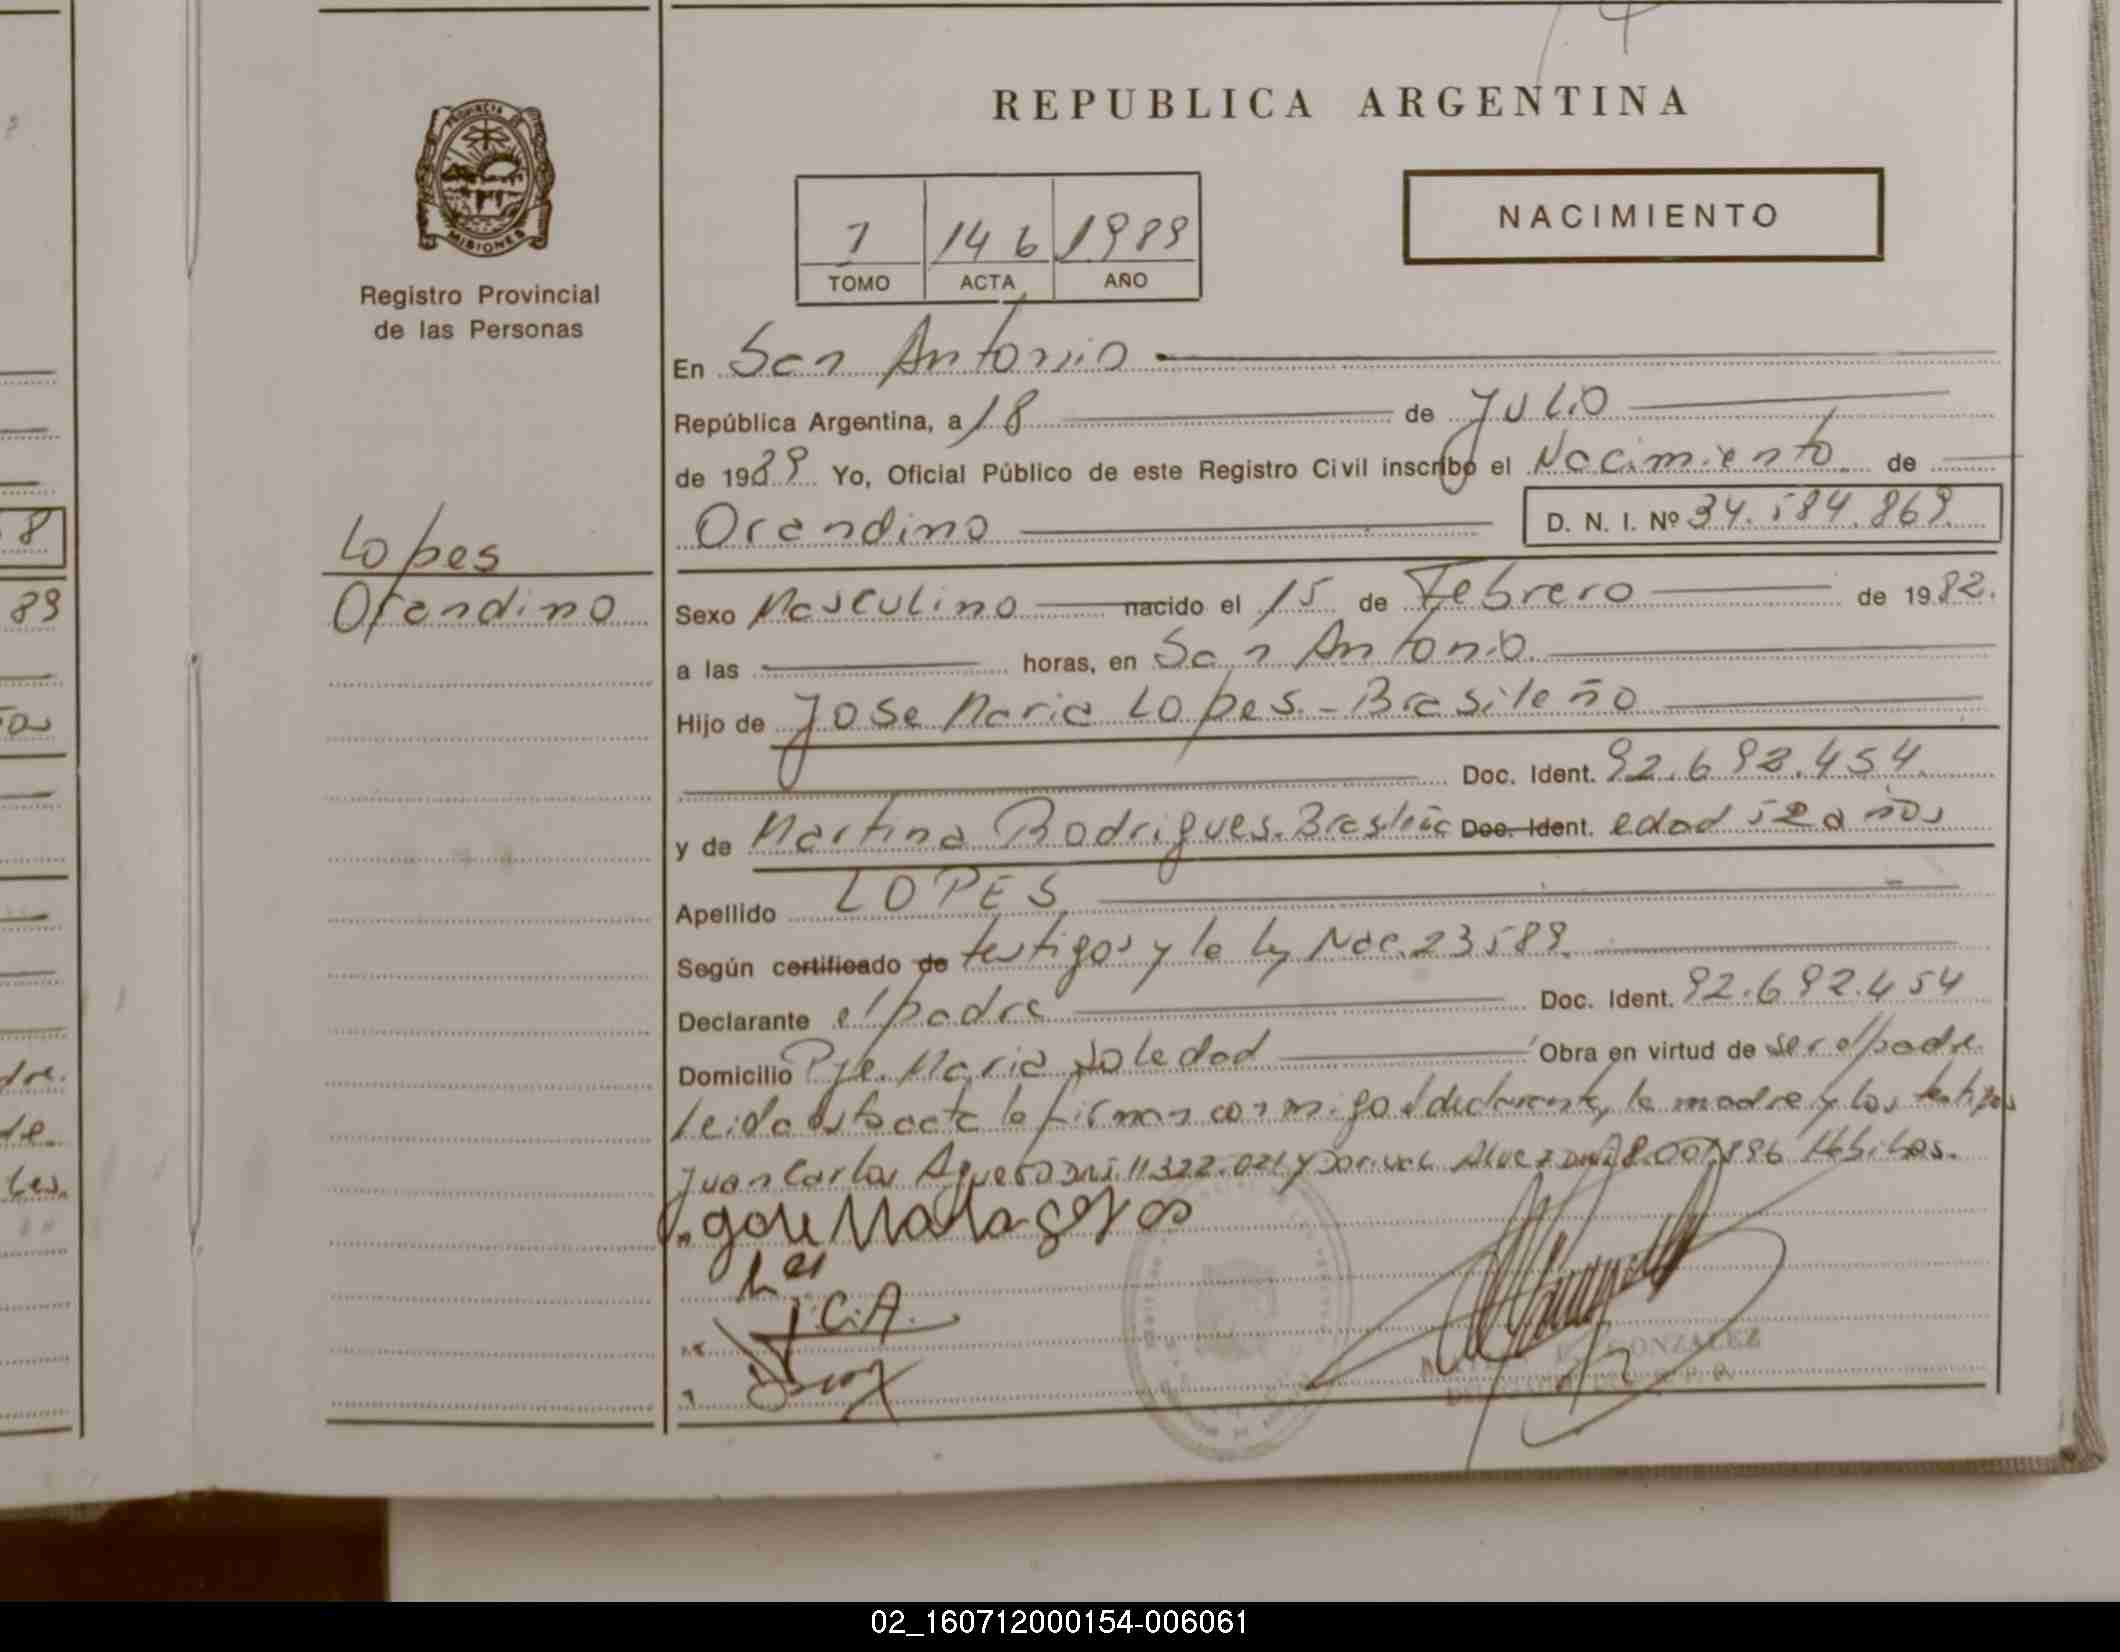 REPUBLICA ARGENTINA
PROVINCIA DE
MISIONES
Registro Provincial
de las Personas
NACIMIENTO
1 146 1989
TOMO ACTA AÑO
En San Antonio
República Argentina, a 18 de Julio
de 1989 Yo, Oficial Público de este Registro Civil inscribo el Nacimiento de
Orandino D. N. I. Nº 34.584.869
Lopes
Orandino
Sexo Masculino nacido el 15 de Febrero de 1982.
a las horas, en San Antonio
Hijo de Jose Maria Lopes.-Brasileño
Doc. Ident. 92.692.454
y de Martina Rodrigues.Brasileña Doc. Ident. edad 52 años
Apellido LOPES
Según certificado de testigos y la ley Nac.23589.
Declarante el padre Doc. Ident. 92.692.454
Domicilio Pje. Maria Soledad Obra en virtud de ser el padre.
Leida esta acta la firman conmigo el declarante, la madre y los testigos
Juan Carlos Aguero DNI. 11322.021 y Dorival Alvez DNI 8.007.896 Hábiles.
J.C.A.
GONZALEZ
8
89
02_160712000154-006061